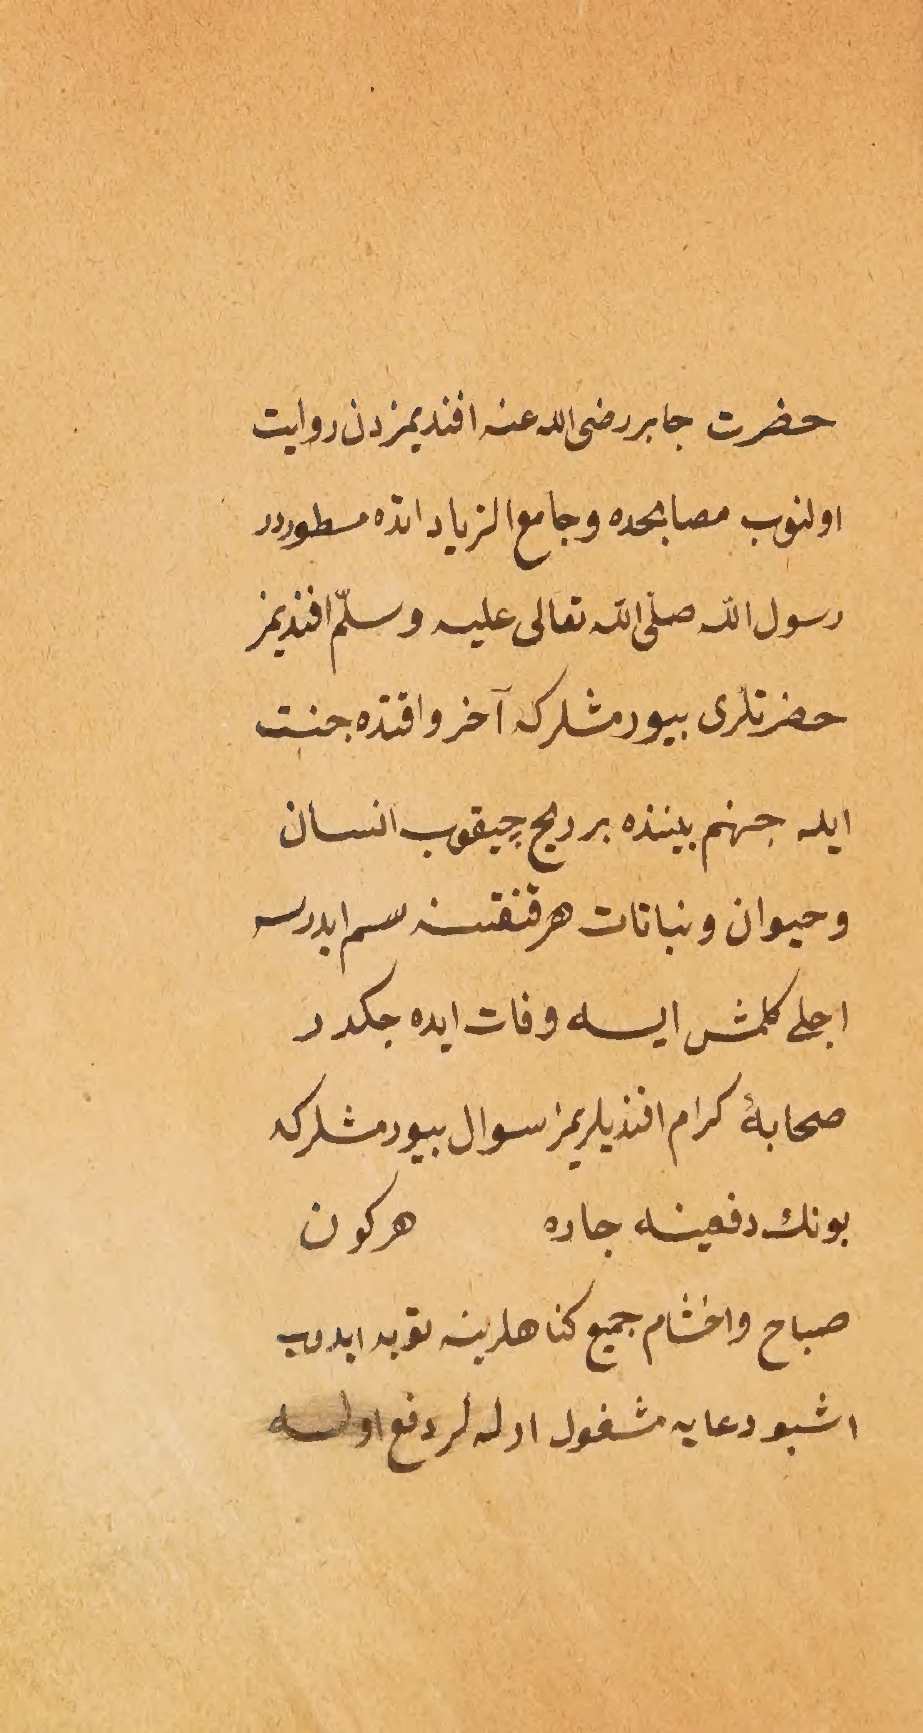 حضرت جابر رضی الله عنه افندیمزدن روایت
اولنوب مصابحده و جامع الزیاداتده مسطوردر
رسول اللّه صلّی اللّه تعالی علیه وسلّم افندیمز
حضرتلری بیورمشلركه آخر وقتده جنت
ایله جهنم بیننده بر ریح چیقوب انسان
و حیوان و نباتات هر قنقسنه سم ایدرسه
اجلی كلمش ایسه وفات ایده جكدر
صحابهٔ كرام افندیلریمز سوال بیورمشلركه
بونك دفعینه چاره هركون
صباح و اخشام جمیع كناهلرینه توبه ایدوب
اشبو دعایه مشغول اوله لر دفع اولسه